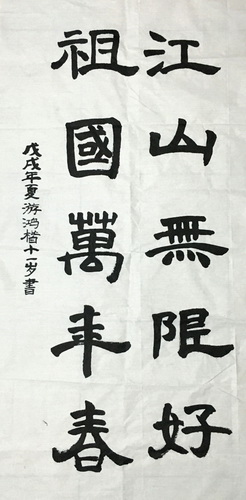 江山無限好
祖國萬年春
戊戌年夏游鸿楷十一岁書